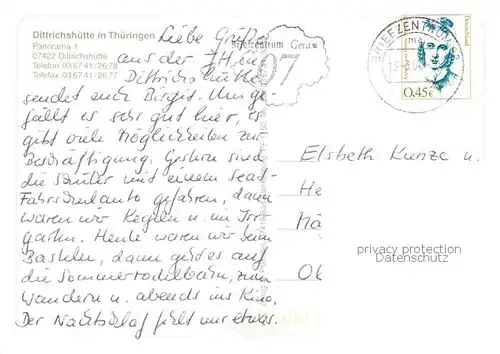 Dittrichshütte in Thüringen
Panorama 1
07422 Dittrichshütte
Telefon 03 67 41/ 26 78
Telefax 03 67 41/ 26 77
Liebe Grüße
aus der
Dittrichshütte
sendet euch Birgit. Uns ge-
fällt es sehr gut hier, es
gibt viele Möglichkeiten zur
Beschäftigung. Gestern sind
die mit einem
gefahren, dann
waren wir Kegeln u. im Irr-
garten. Heute waren wir beim
Basteln, dann geht es auf
die Sommerrodelbahn, zum
Wandern u. abends ins Kino.
Der Nachtschlaf fehlt nur etwas.
Briefzentrum Gera
07
BRIEFZENTRUM
Deutschland
0,45€
Elsbeth Kunze u.
He
Ol
privacy protection
Datenschutz